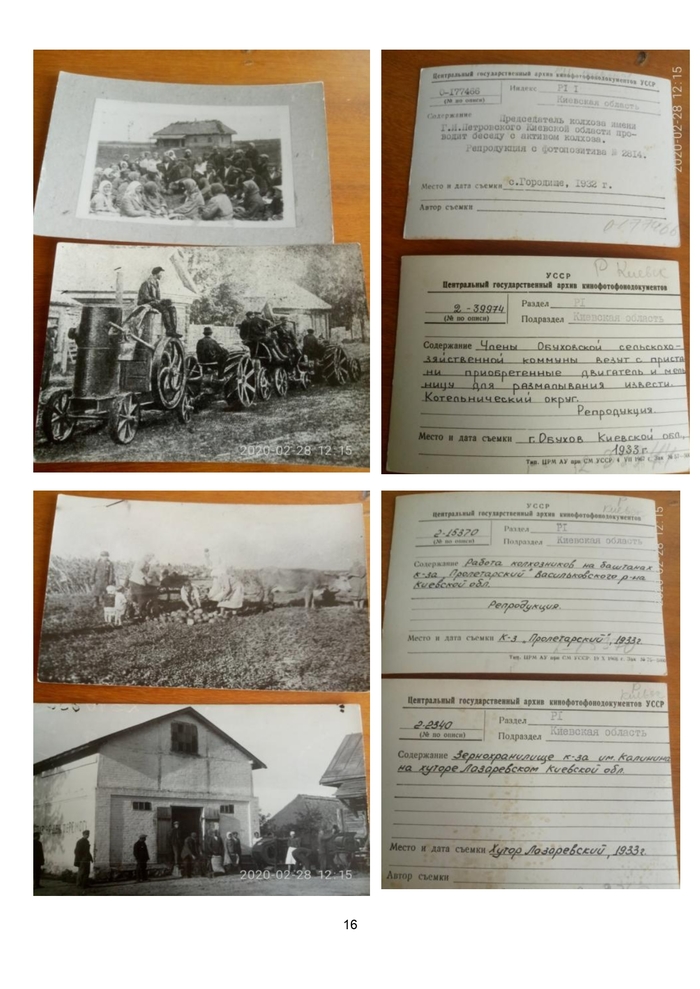 Центральный государственный архив кинофотофонодокументов УССР
0-177466
(№ по описи)
Индекс PI I
Киевская область
Содержание Председатель колхоза имени
Г.И.Петровского Киевской области про-
водит беседу с активом колхоза.
Репродукция с фотопозитива № 2814.
Место и дата съемки с.Городище, 1932 г.
Автор съемки
0-177466
2020-02-28 12:15
2020-02-28 12:15
Р Киевск
УССР
Центральный государственный архив кинофотофонодокументов
2-39974
(№ по описи)
Раздел PI
Подраздел Киевская область
Содержание Члены Обуховской сельскохо-
зяйственной коммуны везут с приста
ни приобретенные двигатель и мель
ницу для размалывания извести.
Котельнический округ.
Репродукция.
Место и дата съемки г.Обухов Киевской обл.,
1933г.
Тип. ЦРМ АУ при СМ УССР.
УССР
Центральный государственный архив кинофотофонодокументов
2-15370
(№ по описи)
Раздел PI
Подраздел Киевская область
Содержание Работа колхозников на баштанах
к-за „Пролетарский" Васильковского р-на
Киевской обл.
Репродукция.
Место и дата съемки К-з „Пролетарский", 1933г.
Тип. ЦРМ АУ при СМ УССР.
2020-02-28 12:15
Центральный государственный архив кинофотофонодокументов УССР
2-2340
(№ по описи)
Раздел PI
Подраздел Киевская область
Содержание Зернохранилище к-за им.Калинина
на хуторе Лазаревском Киевской обл.
Место и дата съемки Хутор Лазаревский, 1933г.
Автор съемки
2020-02-28 12:15
16